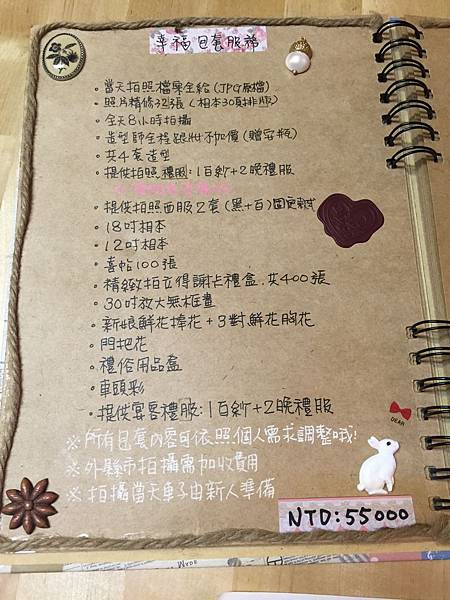 幸福包套服務
・當天拍照檔案全給(JPG原檔)
・照片精修32張(相本30頁排版)
・全天8小時拍攝
・造型師全程跟妝不加價(贈安瓶)
・共4套造型
・提供拍照禮服:1白紗+2晚禮服
・提供拍照西服2套(黑+白)固定款式
・18吋相本
・12吋相本
・喜帖100張
・精緻拍立得謝卡禮盒.共400張
・30吋放大無框畫
・新娘鮮花捧花+3對鮮花胸花
・門把花
・禮俗用品盒
・車頭彩
・提供宴客禮服:1白紗+2晚禮服
※所有包套內容可依照個人需求調整哦!
※外縣市拍攝需加收費用
※拍攝當天車子由新人準備
DEAR
NTD:55000